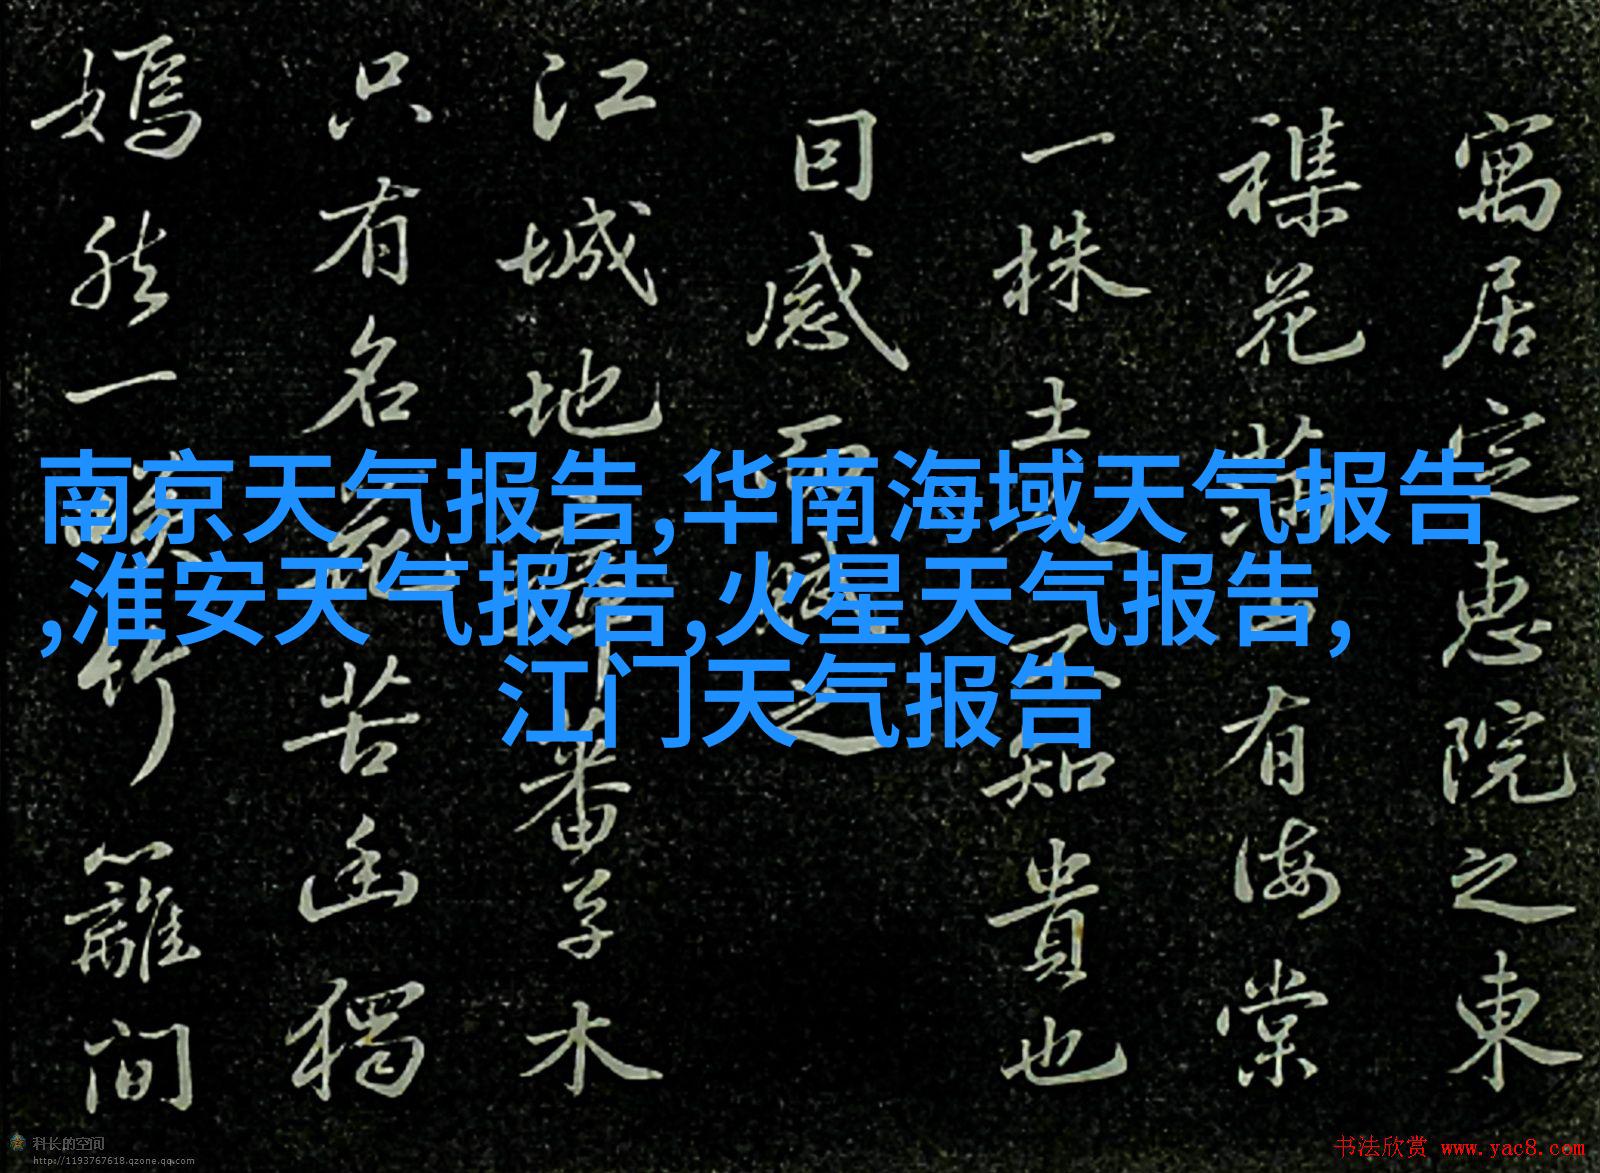 寓居定惠院之東
襍花滿山有海棠
一株土人不知貴也
囙感而賦之
江城地瘴蕃草木
只有名花苦幽獨
嫣然一笑竹籬間
南京天气报告,华南海域天气报告
,淮安天气报告,火星天气报告,
江门天气报告
科长的空间
http://1193767618.qzone.qq.com
书法欣赏 www.yac8.com